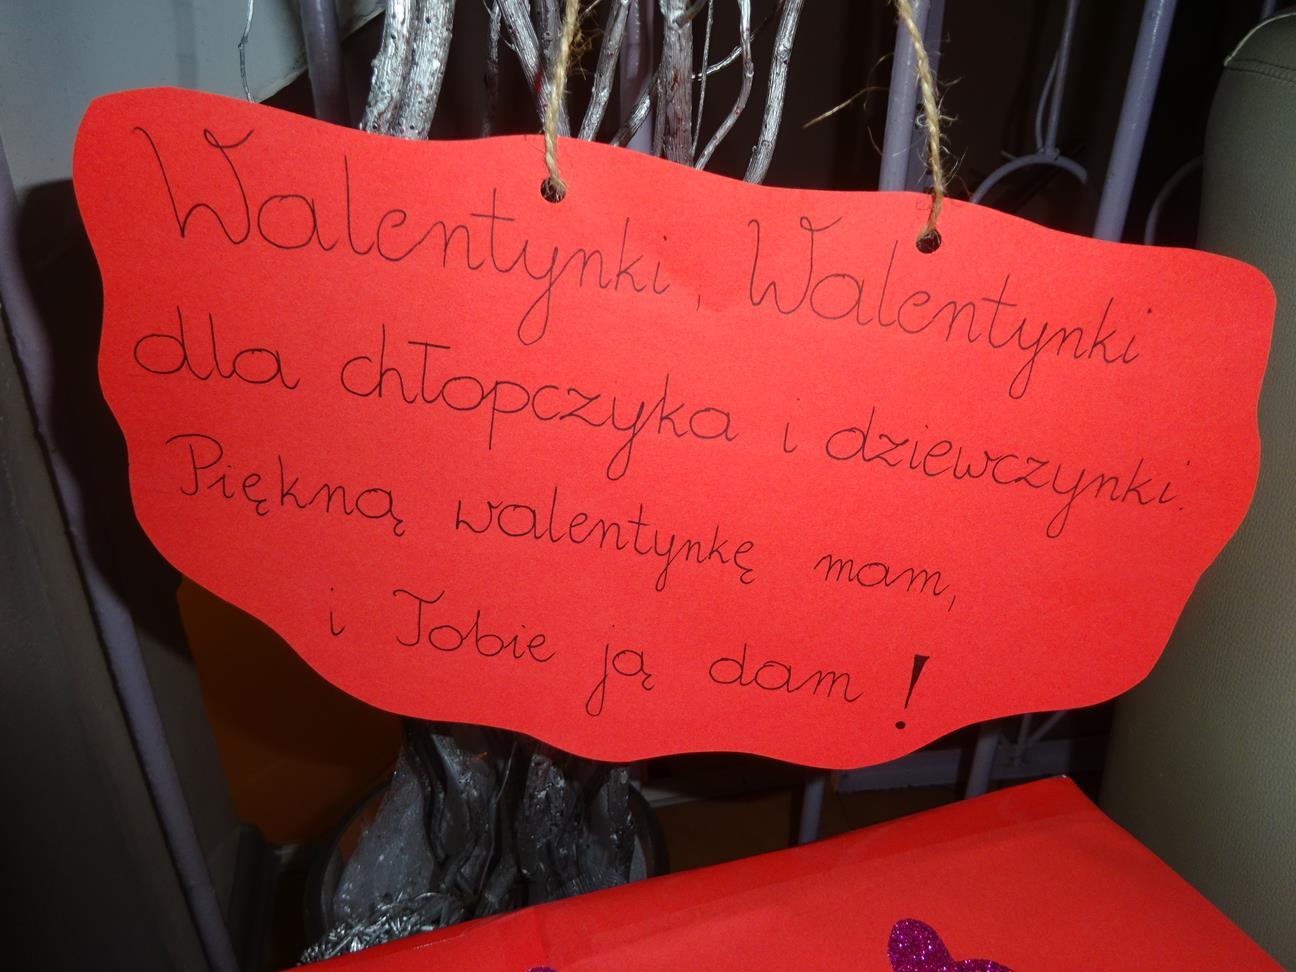 Walentynki, Walentynki
dla chłopczyka i dziewczynki.
Piękną walentynkę mam,
i Tobie ją dam!